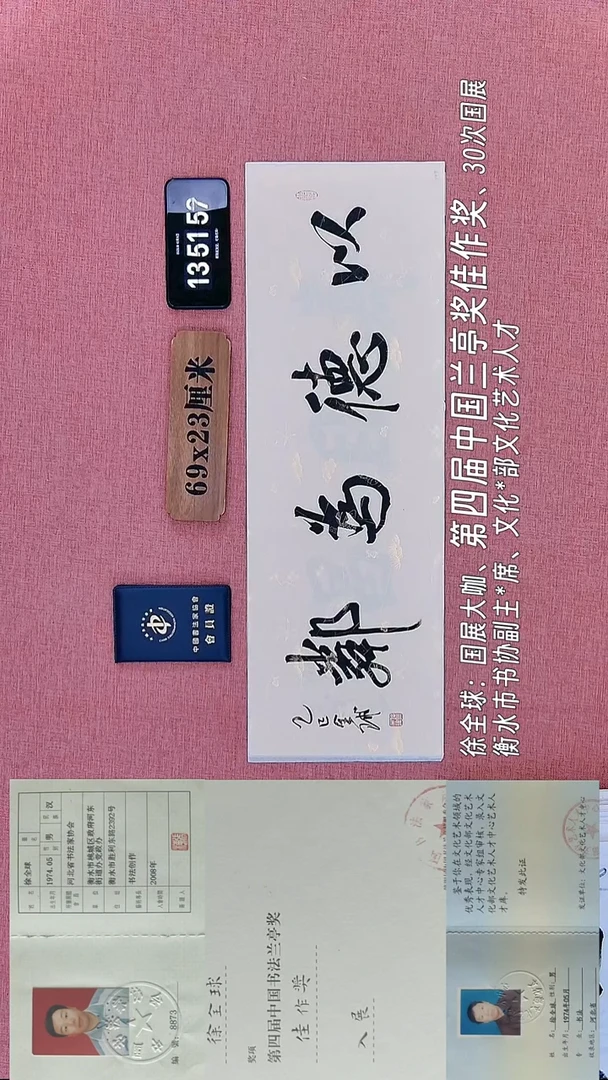 135157
69x23厘米
中國書法家協會
會員證
以德為鄰
乙巳全球
徐全球：国展大咖、第四届中国兰亭奖佳作奖、30次国展
衡水市书协副主*席、文化*部文化艺术人才
姓名 徐全球
出生年月 1974.05 性别 男 民族 汉
河北省书法家协会
衡水市桃城区政府河东街道办党政办
衡水市胜利东路2392号
书法创作
2008年
编号: 8873
徐全球
奖项
第四届中国书法兰亭奖
佳作奖
入展
鉴于你在文化艺术领域的
优秀表现，经文化部文化艺术
人才中心专家组审核，录入文
化部文化艺术人才中心艺术人
才库。
特发此证
发证单位：文化部文化艺术人才中心
姓名：徐全球 性别：男
出生年月：1974年05月
专业：书法